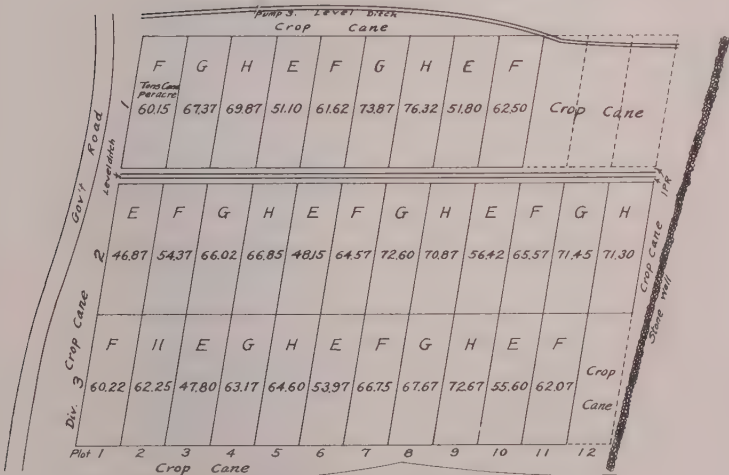 Pump 3. Level Ditch
Crop Cane
F G H E F G H E F
Tons Cane
per acre
1 60.15 67.37 69.87 51.10 61.62 73.87 76.32 51.80 62.50 Crop Cane
Gov't Road
Level ditch
I.P.R.
E F G H E F G H E F G H
2 46.87 54.37 66.02 66.85 48.15 64.57 72.60 70.87 56.42 65.57 71.45 71.30
Crop Cane
Crop Cane
Stone Wall
F H E G H E F G H E F
Div. 3 60.22 62.25 47.80 63.17 64.60 53.97 66.75 67.67 72.67 55.60 62.07 Crop
Cane
Plot 1 2 3 4 5 6 7 8 9 10 11 12
Crop Cane